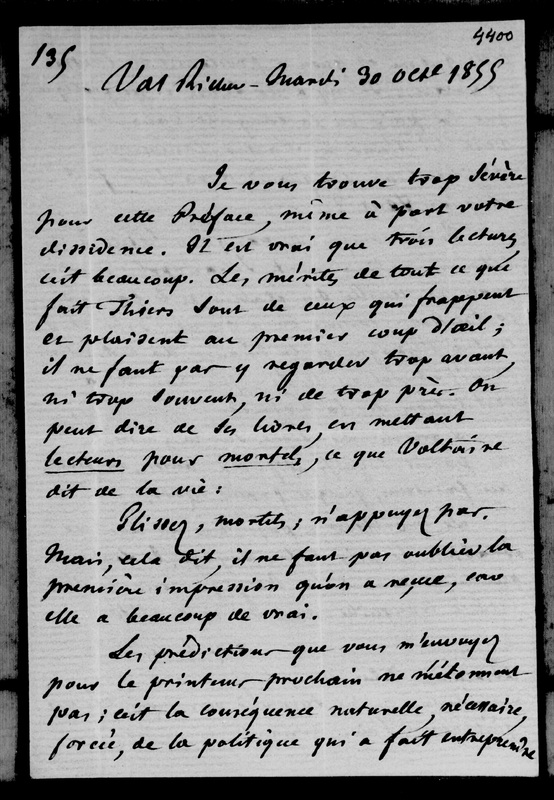 4400
135
Val Richer - Mardi 30 Octe 1855
Je vous trouve trop sévère
pour cette Préface, même à part votre
dissidence. Il est vrai que trois lectures,
c'est beaucoup. Les mérites de tout ce que
fait Thiers sont de ceux qui frappent
et plaisent au premier coup d'œil ;
il ne faut pas y regarder trop avant,
ni trop souvent, ni de trop près. On
peut dire de ses livres, en mettant
lecteurs pour mortels, ce que Voltaire
dit de la vie :
Glissez, mortels ; n'appuyez pas.
Mais, cela dit, il ne faut pas oublier la
première impression qu'on a reçue, car
elle a beaucoup de vrai.
Les prédictions que vous m'envoyez
pour le printems prochain ne m'étonnent
pas ; c'est la conséquence naturelle, nécessaire,
forcée, de la politique qui a fait entreprendre